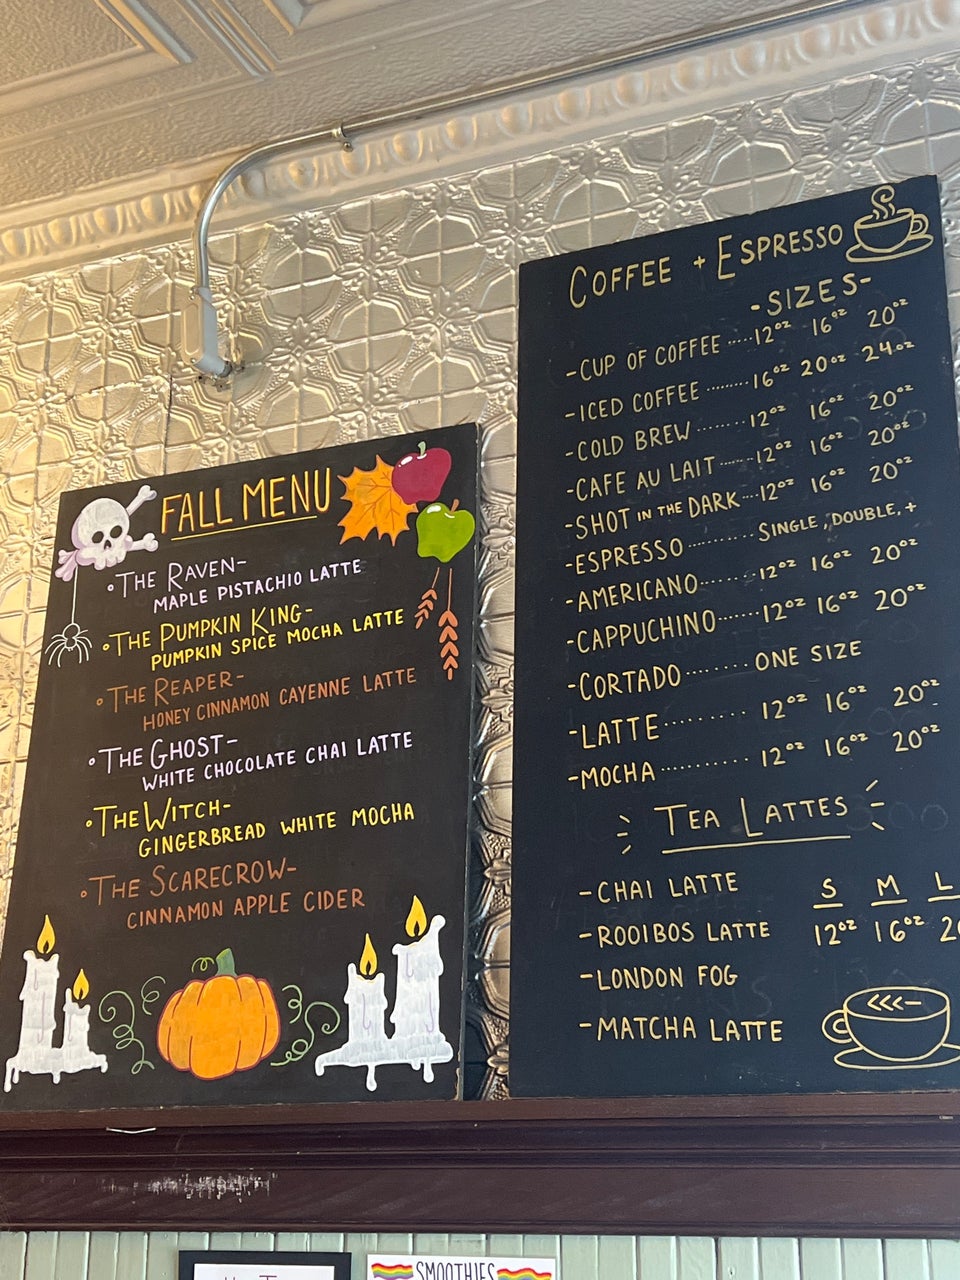 FALL MENU
•THE RAVEN-
MAPLE PISTACHIO LATTE
•THE PUMPKIN KING-
PUMPKIN SPICE MOCHA LATTE
•THE REAPER-
HONEY CINNAMON CAYENNE LATTE
•THE GHOST-
WHITE CHOCOLATE CHAI LATTE
•THE WITCH-
GINGERBREAD WHITE MOCHA
•THE SCARECROW-
CINNAMON APPLE CIDER
COFFEE + ESPRESSO
-SIZES-
-CUP OF COFFEE.....12oz 16oz 20oz
-ICED COFFEE.........16oz 20oz 24oz
-COLD BREW........12oz 16oz 20oz
-CAFE AU LAIT......12oz 16oz 20oz
-SHOT IN THE DARK...12oz 16oz 20oz
-ESPRESSO..........SINGLE, DOUBLE, +
-AMERICANO.......12oz 16oz 20oz
-CAPPUCHINO......12oz 16oz 20oz
-CORTADO........ONE SIZE
-LATTE..........12oz 16oz 20oz
-MOCHA...........12oz 16oz 20oz
TEA LATTES
S M L
-CHAI LATTE
-ROOIBOS LATTE 12oz 16oz
-LONDON FOG
-MATCHA LATTE
SMOOTHIES